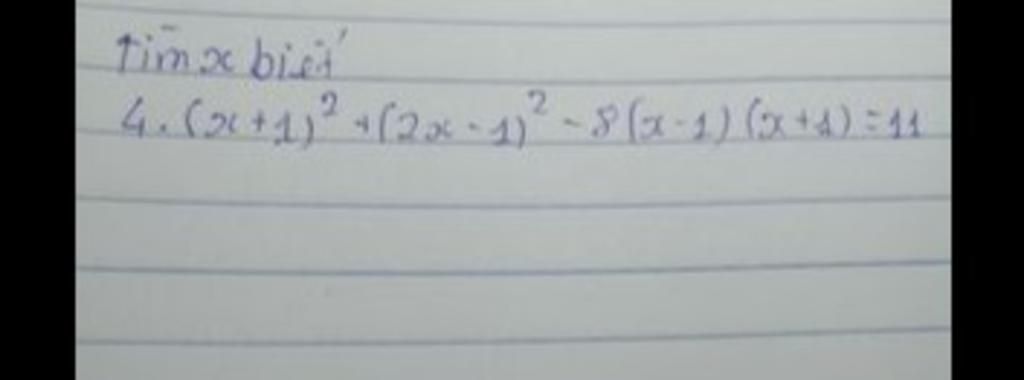 Tìm x biết
4.(x+1)² +(2x-1)² - 8(x-1)(x+1)=11